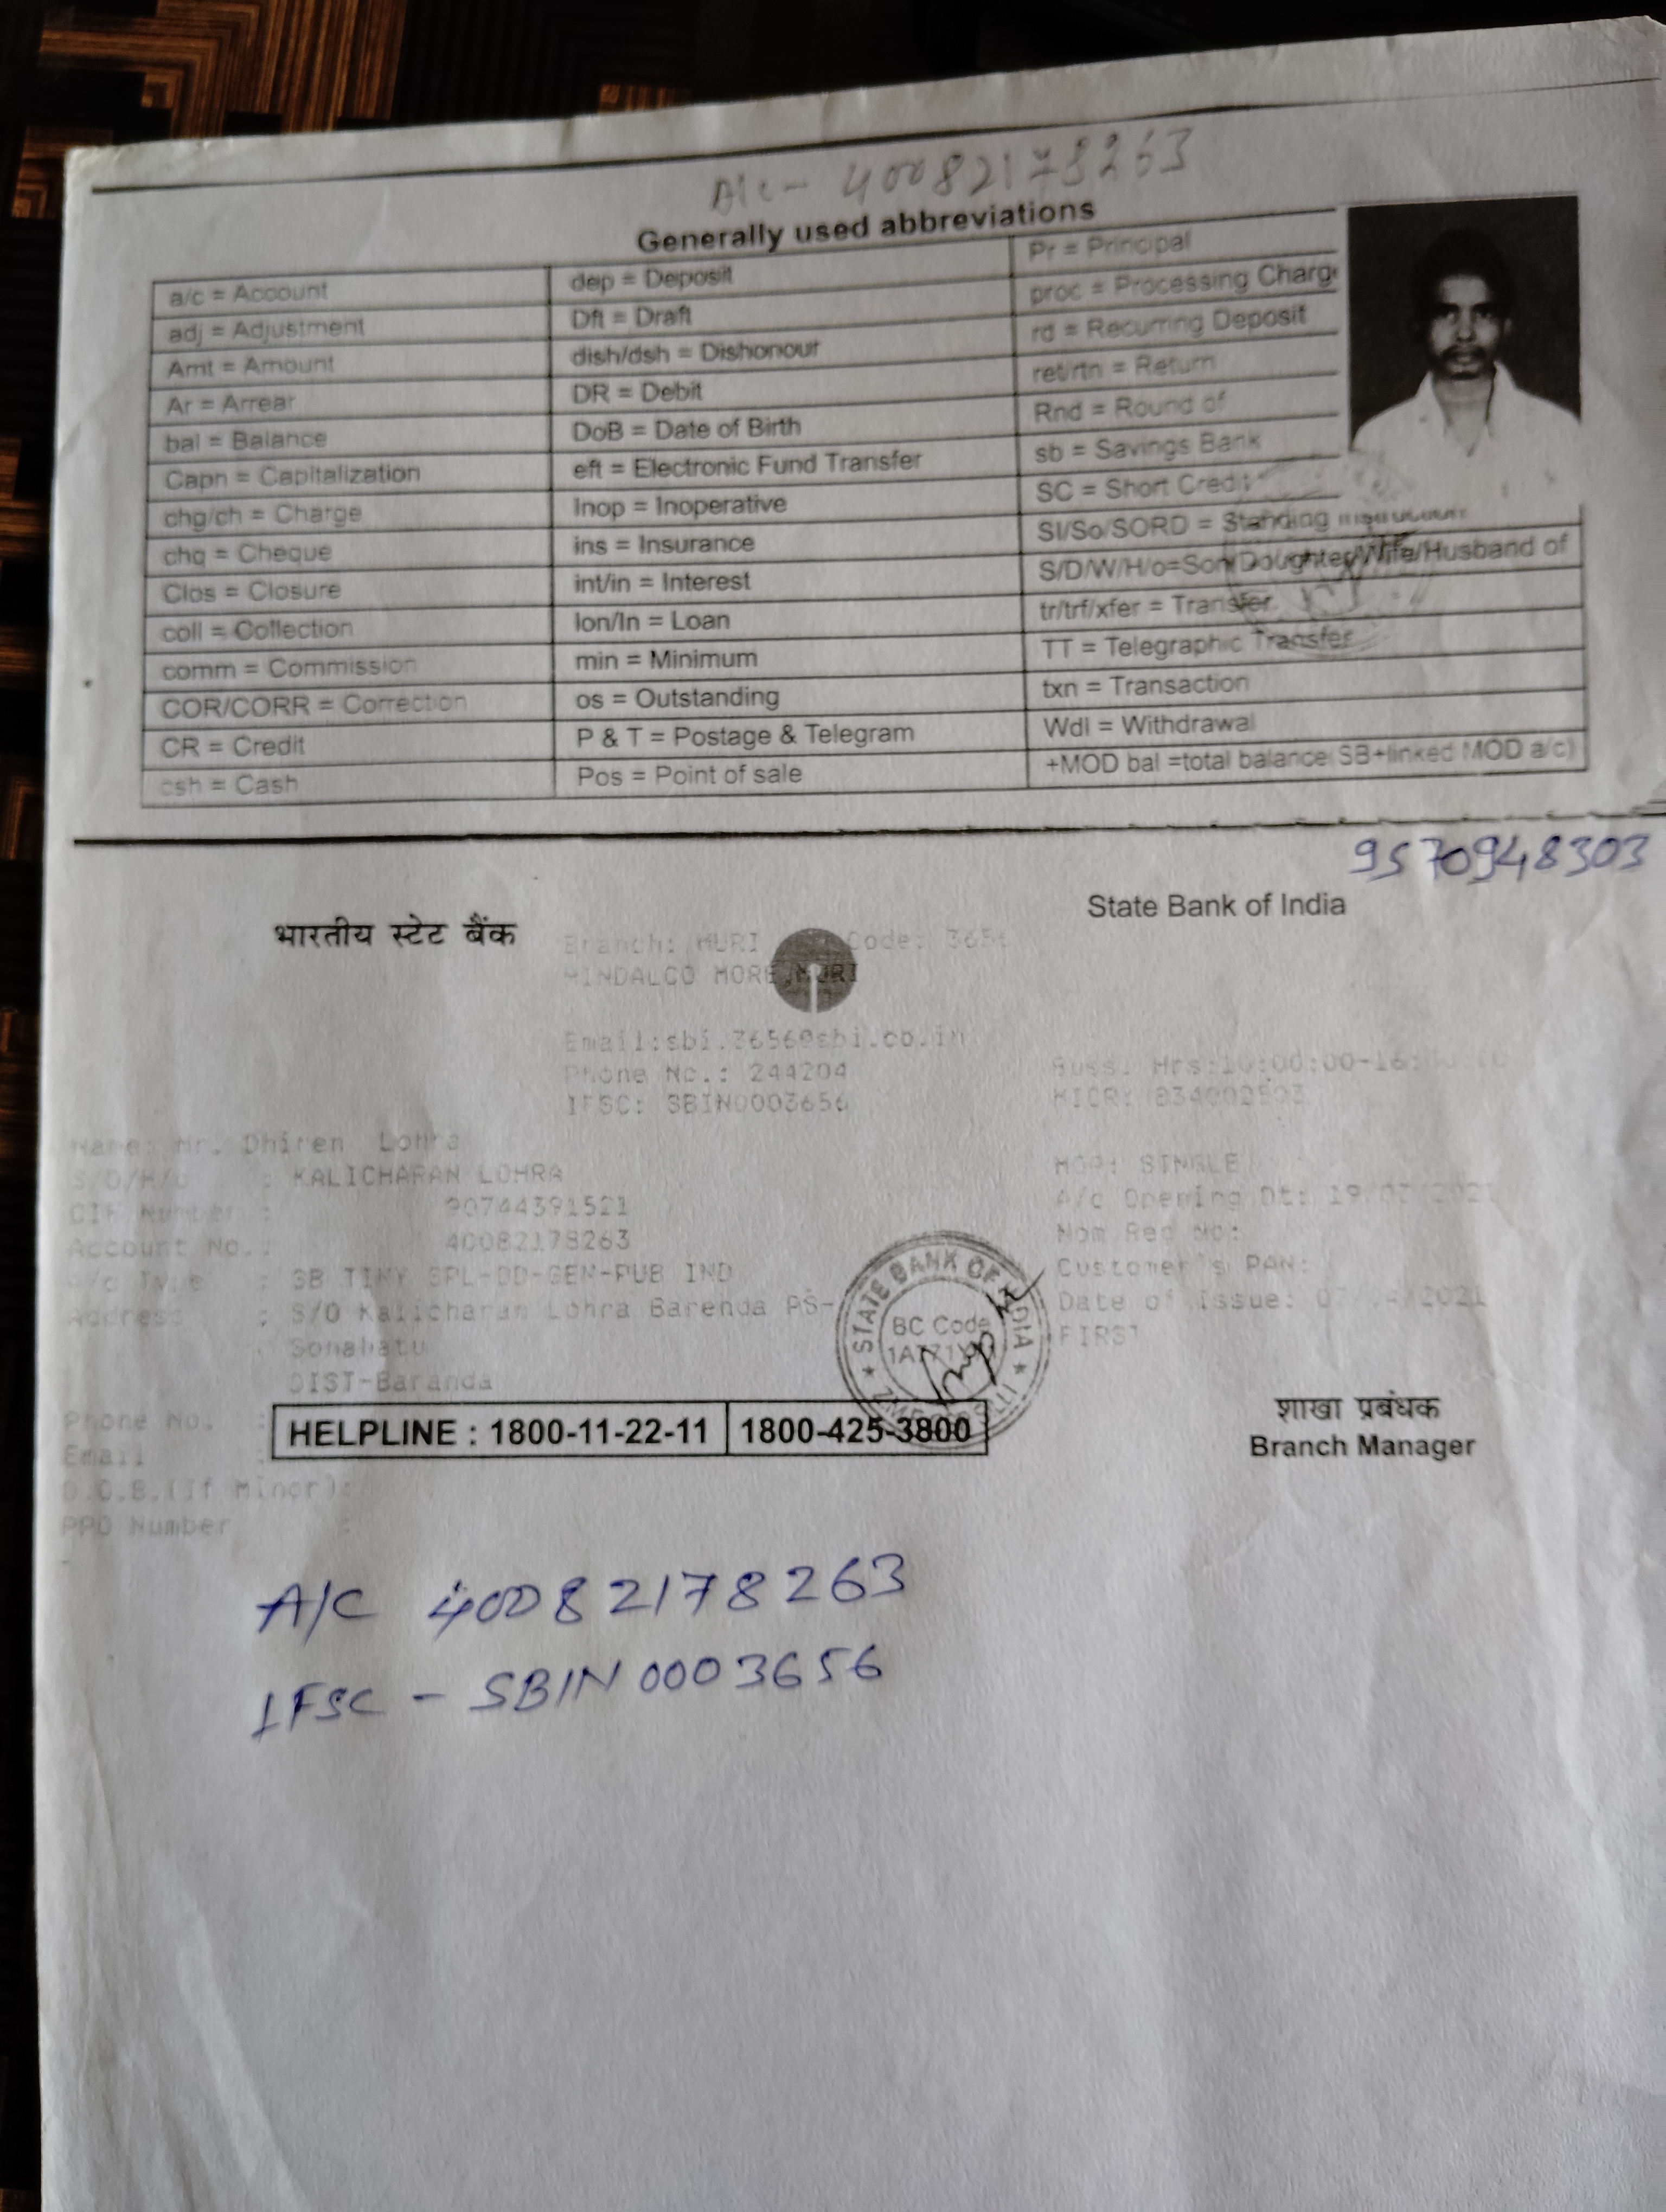 A/c - 40082178263
Generally used abbreviations
a/c = Account
adj = Adjustment
Amt = Amount
Ar = Arrear
bal = Balance
Capn = Capitalization
chg/ch = Charge
chq = Cheque
Clos = Closure
coll = Collection
comm = Commission
COR/CORR = Correction
CR = Credit
csh = Cash
dep = Deposit
Dft = Draft
dish/dsh = Dishonour
DR = Debit
DoB = Date of Birth
eft = Electronic Fund Transfer
Inop = Inoperative
ins = Insurance
int/in = Interest
lon/ln = Loan
min = Minimum
os = Outstanding
P & T = Postage & Telegram
Pos = Point of sale
Pr = Principal
proc = Processing Charg
rd = Recurring Deposit
ret/rtn = Return
Rnd = Round of
sb = Savings Bank
SC = Short Credit
SI/So/SORD = Standing
S/D/W/H/o=Son/Doughter/Wife/Husband of
tr/trf/xfer = Transfer
TT = Telegraphic Transfer
txn = Transaction
Wdl = Withdrawal
+MOD bal =total balance(SB+linked MOD a/c)
9570948303
भारतीय स्टेट बैंक
State Bank of India
Branch: MURI Code: 3656
HINDALCO MORE,MURI
Email:sbi.3656@sbi.co.in
Phone No.: 244204
Buss. Hrs:10:00:00-16:
IFSC: SBIN0003656
MICR:
Name: Mr. Dhiren Lohra
S/D/H/o : KALICHARAN LOHRA
MOP: SINGLE
CIF Number : 90744391521
A/c Opening Dt: 2021
Account No.: 40082178263
Nom Reg No:
A/c Type : SB TINY SPL-OD-GEN-PUB IND
Customer's PAN:
Address : S/O Kalicharan Lohra Barenda PS-
Date of Issue: 2021
Sonahatu
FIRST
DIST-Baranda
STATE BANK OF INDIA
BC Code
Phone No. :
HELPLINE : 1800-11-22-11 1800-425-3800
शाखा प्रबंधक
Branch Manager
Email
D.O.B.(If Minor):
PPO Number :
A/C 40082178263
IFSC - SBIN0003656